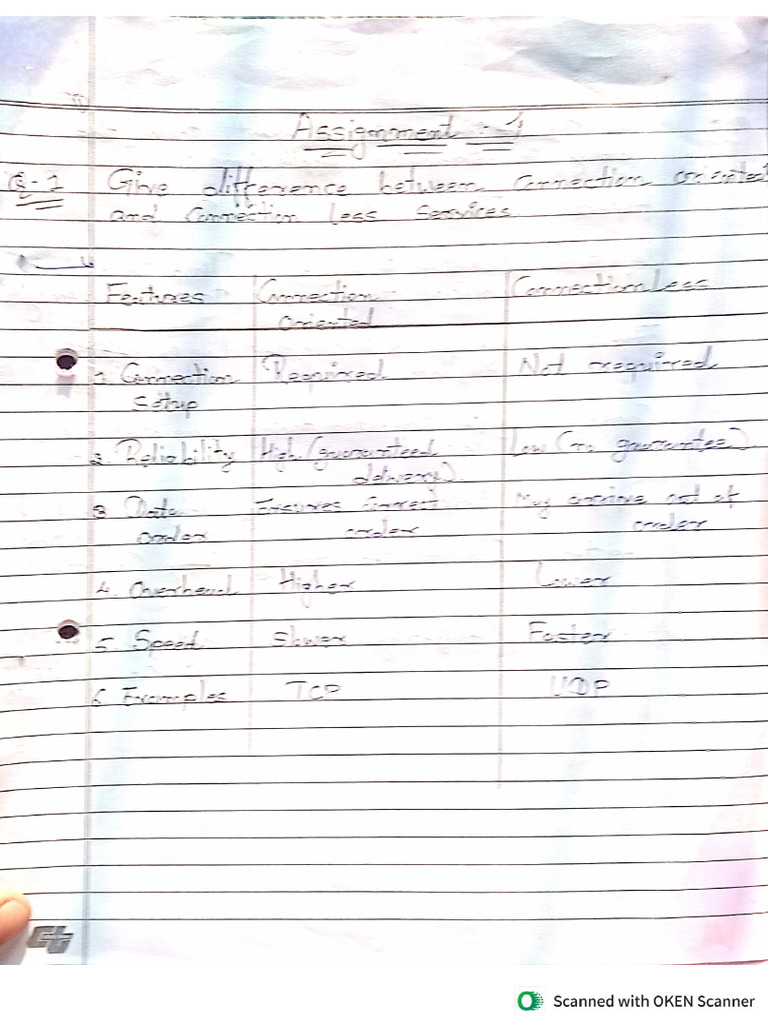 Assignment - 1
Q-1 Give difference between Connection oriented
and Connection less Services.
Features Connection ConnectionLess
oriented
1. Connection Required Not required
Setup
2. Reliability High (guaranteed Low (no guarantee)
delivery)
3 Data Ensures Correct May arrive out of
order order order
4. Overhead Higher Lower
5. Speed Slower Faster
6. Examples TCP UDP
Scanned with OKEN Scanner